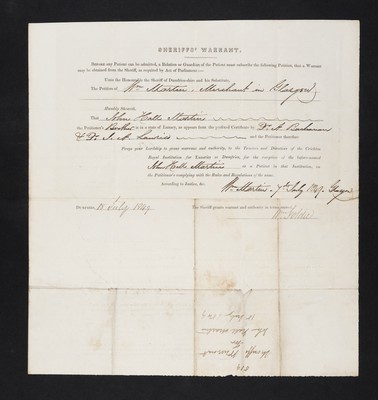 SHERIFFS' WARRANT.
BEFORE any Patient can be admitted, a Relation or Guardian of the Patient must subscribe the following Petition, that a Warrant
may be obtained from the Sheriff, as required by Act of Parliament:—
Unto the Honourable the Sheriff of Dumfries-shire and his Substitute,
The Petition of Wm Martin - Merchant in Glasgow
Humbly Sheweth,
That John Kells Martin
the Petitioner's Brother is in a state of Lunacy, as appears from the prefixed Certificate by Dr A Buchanan
& Dr J. A. Lawrie and the Petitioner therefore
Prays your Lordship to grant warrant and authority, to the Trustees and Directors of the Crichton
Royal Institution for Lunatics at Dumfries, for the reception of the before-named
John Kells Martin as a Patient in that Institution, on
the Petitioner's complying with the Rules and Regulations of the same.
According to Justice, &c. Wm Martin - 7th July 1849 - Glasgow
DUMFRIES, 11 July 1849 The Sheriff grants warrant and authority as above craved.
Sheriff's Warrant
for
John Kells Martin
11 July 1849